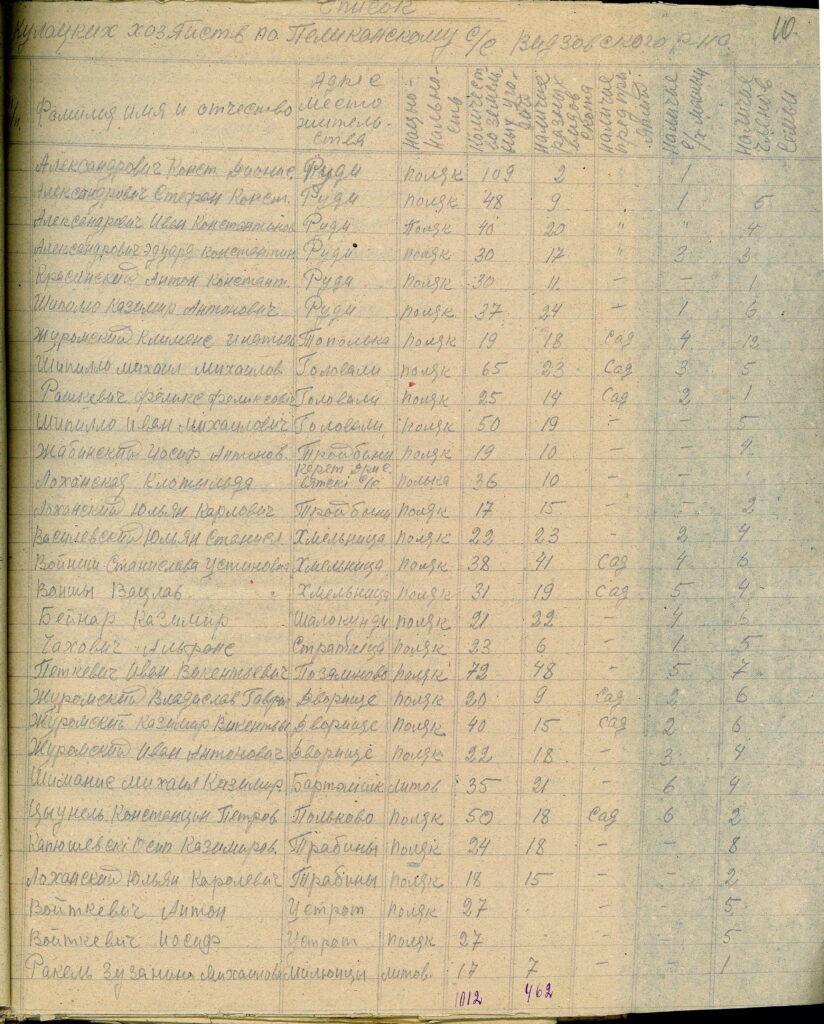 Список
10.
Кулацких хозяйств по Пеликанскому с/с Видзовского р-на
Фамилия имя и отчество | Адрес место житель-ства | Нацио-нально-сть | количест. земель-ных уго-дий | наличие разных видов скота | наличие предпри- | наличие с/х машин | наличие членов семьи
Александрович Конст. Дионис. Руди поляк 109 2 1
Александрович Стефан Конст. Руди поляк 48 9 1 5
Александрович Иван Константинов Руди поляк 40 20 " " 4
Александрович Эдуард Константин Руди поляк 30 17 " 3 3
Красинский Антон Констант. Руди поляк 30 11 – – 1
Шипилло Казимир Антонович Руди поляк 37 24 – 1 6
Журомский Клименс Игнатьев Тополька поляк 19 18 сад 4 12
Шипилло Михаил Михайлов Головали поляк 65 23 сад 3 5
Рашкевич Феликс Феликсов Головали поляк 25 14 сад 2 1
Шипилло Иван Михайлович Головали поляк 50 19 – – 5
Жабинский Иосиф Антонов. поляк 19 10 – – 4
Лоханская Клотыльда с/с полька 36 10 – –
Лоханский Юльян Карлович поляк 17 15 – – 2
Василевский Юльян Станисл. Хмельница поляк 22 23 – 2 4
Войнии Станислава Устиновна Хмельница поляк 38 41 сад 4 6
Вонты Вацлав Хмельница поляк 31 19 сад 5 4
Бейнар Казимир Шалокунди поляк 21 22 – 4 6
Чахович Альфонс поляк 23 6 – 1 5
Петкевич Иван Викентьевич поляк 72 48 – 5 7
Журомский Владислав Гавры Дворище поляк 20 9 сад 2 6
Журомский Казимир Викентьы Дворище поляк 40 15 сад 2 6
Журомский Иван Антонович Дворище поляк 22 18 – 3 4
Шиманис Михаил Казимир литов 35 21 – 6 4
Цыунель Констенцын Петров Полькова поляк 50 18 сад 6 2
Капюшевскi Осип Казимиров. Трабины поляк 24 18 – – 8
Лоханский Юльян Каролевич Трабины поляк 18 15 – – 2
Войткевич Антон Устрот поляк 27 – – 5
Войткевич Иосиф Устрот поляк 27 – – 5
Ракель Зузанина Михайловна Милюнцы литов. 17 7 – – 1
1012 462